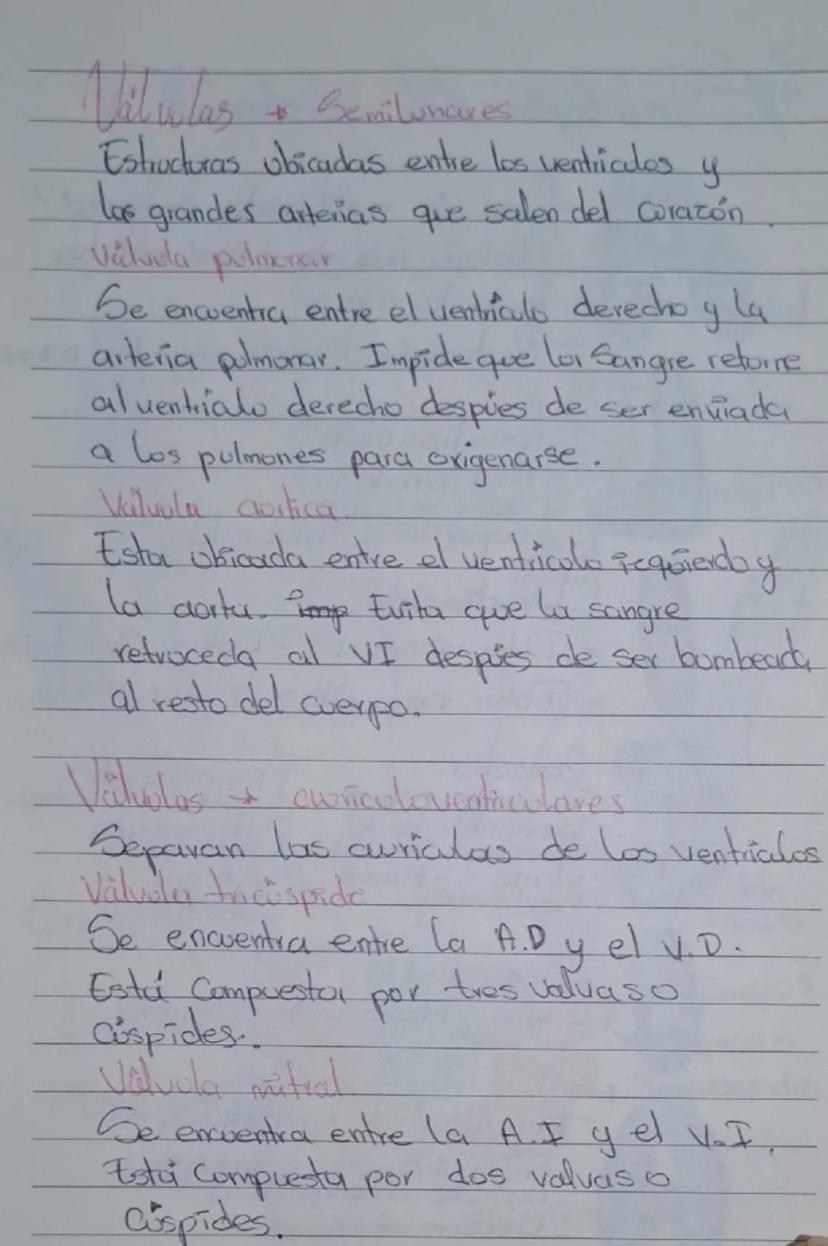 Válvulas → Semilunares
Estructuras ubicadas entre los ventrículos y
las grandes arterias que salen del corazón.
Válvula pulmonar
Se encuentra entre el ventrículo derecho y la
arteria pulmonar. Impide que la Sangre retorne
al ventrículo derecho despúes de ser enviada
a los pulmones para oxigenarse.
Válvula aortica
Esta ubicada entre el ventrículo izquierdo y
la aorta. imp Evita que la sangre
retroceda al VI despúes de ser bombeada
al resto del cuerpo.
Válvulas → auriculoventriculares
Separan las aurículas de los ventrículos
Válvula tricúspide
Se encuentra entre la A.D y el V.D.
Está Compuesta por tres valvas o
Cúspides.
Válvula mitral
Se encuentra entre la A.I y el V.I.
Está Compuesta por dos valvas o
Cúspides.